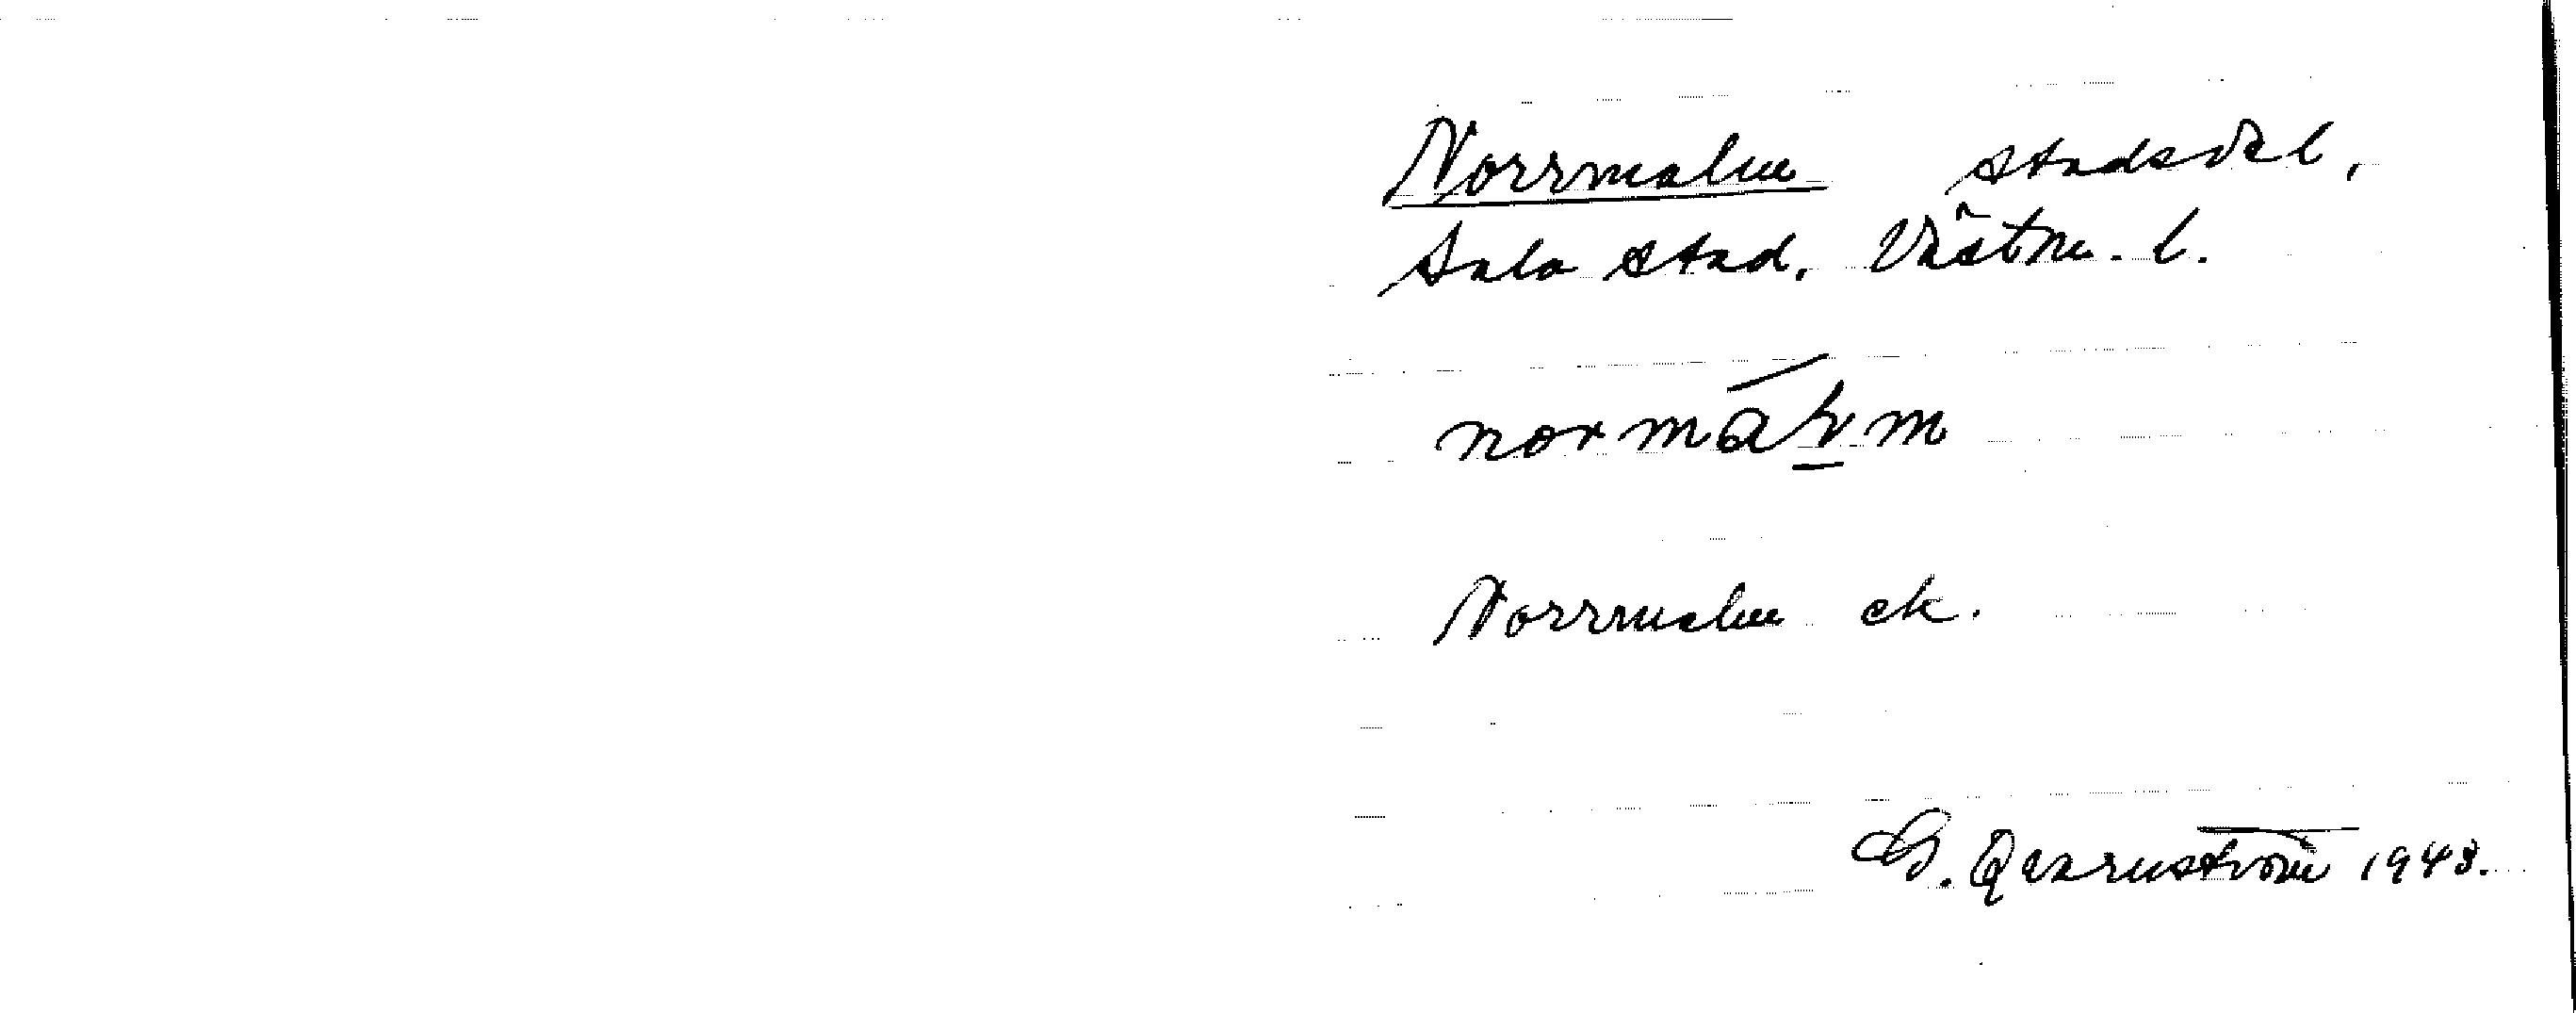 Norrmalm stadsdel,
Sala stad, Västm. l.
normálm
Norrmalm ek.
G. Qvarnström 1943.